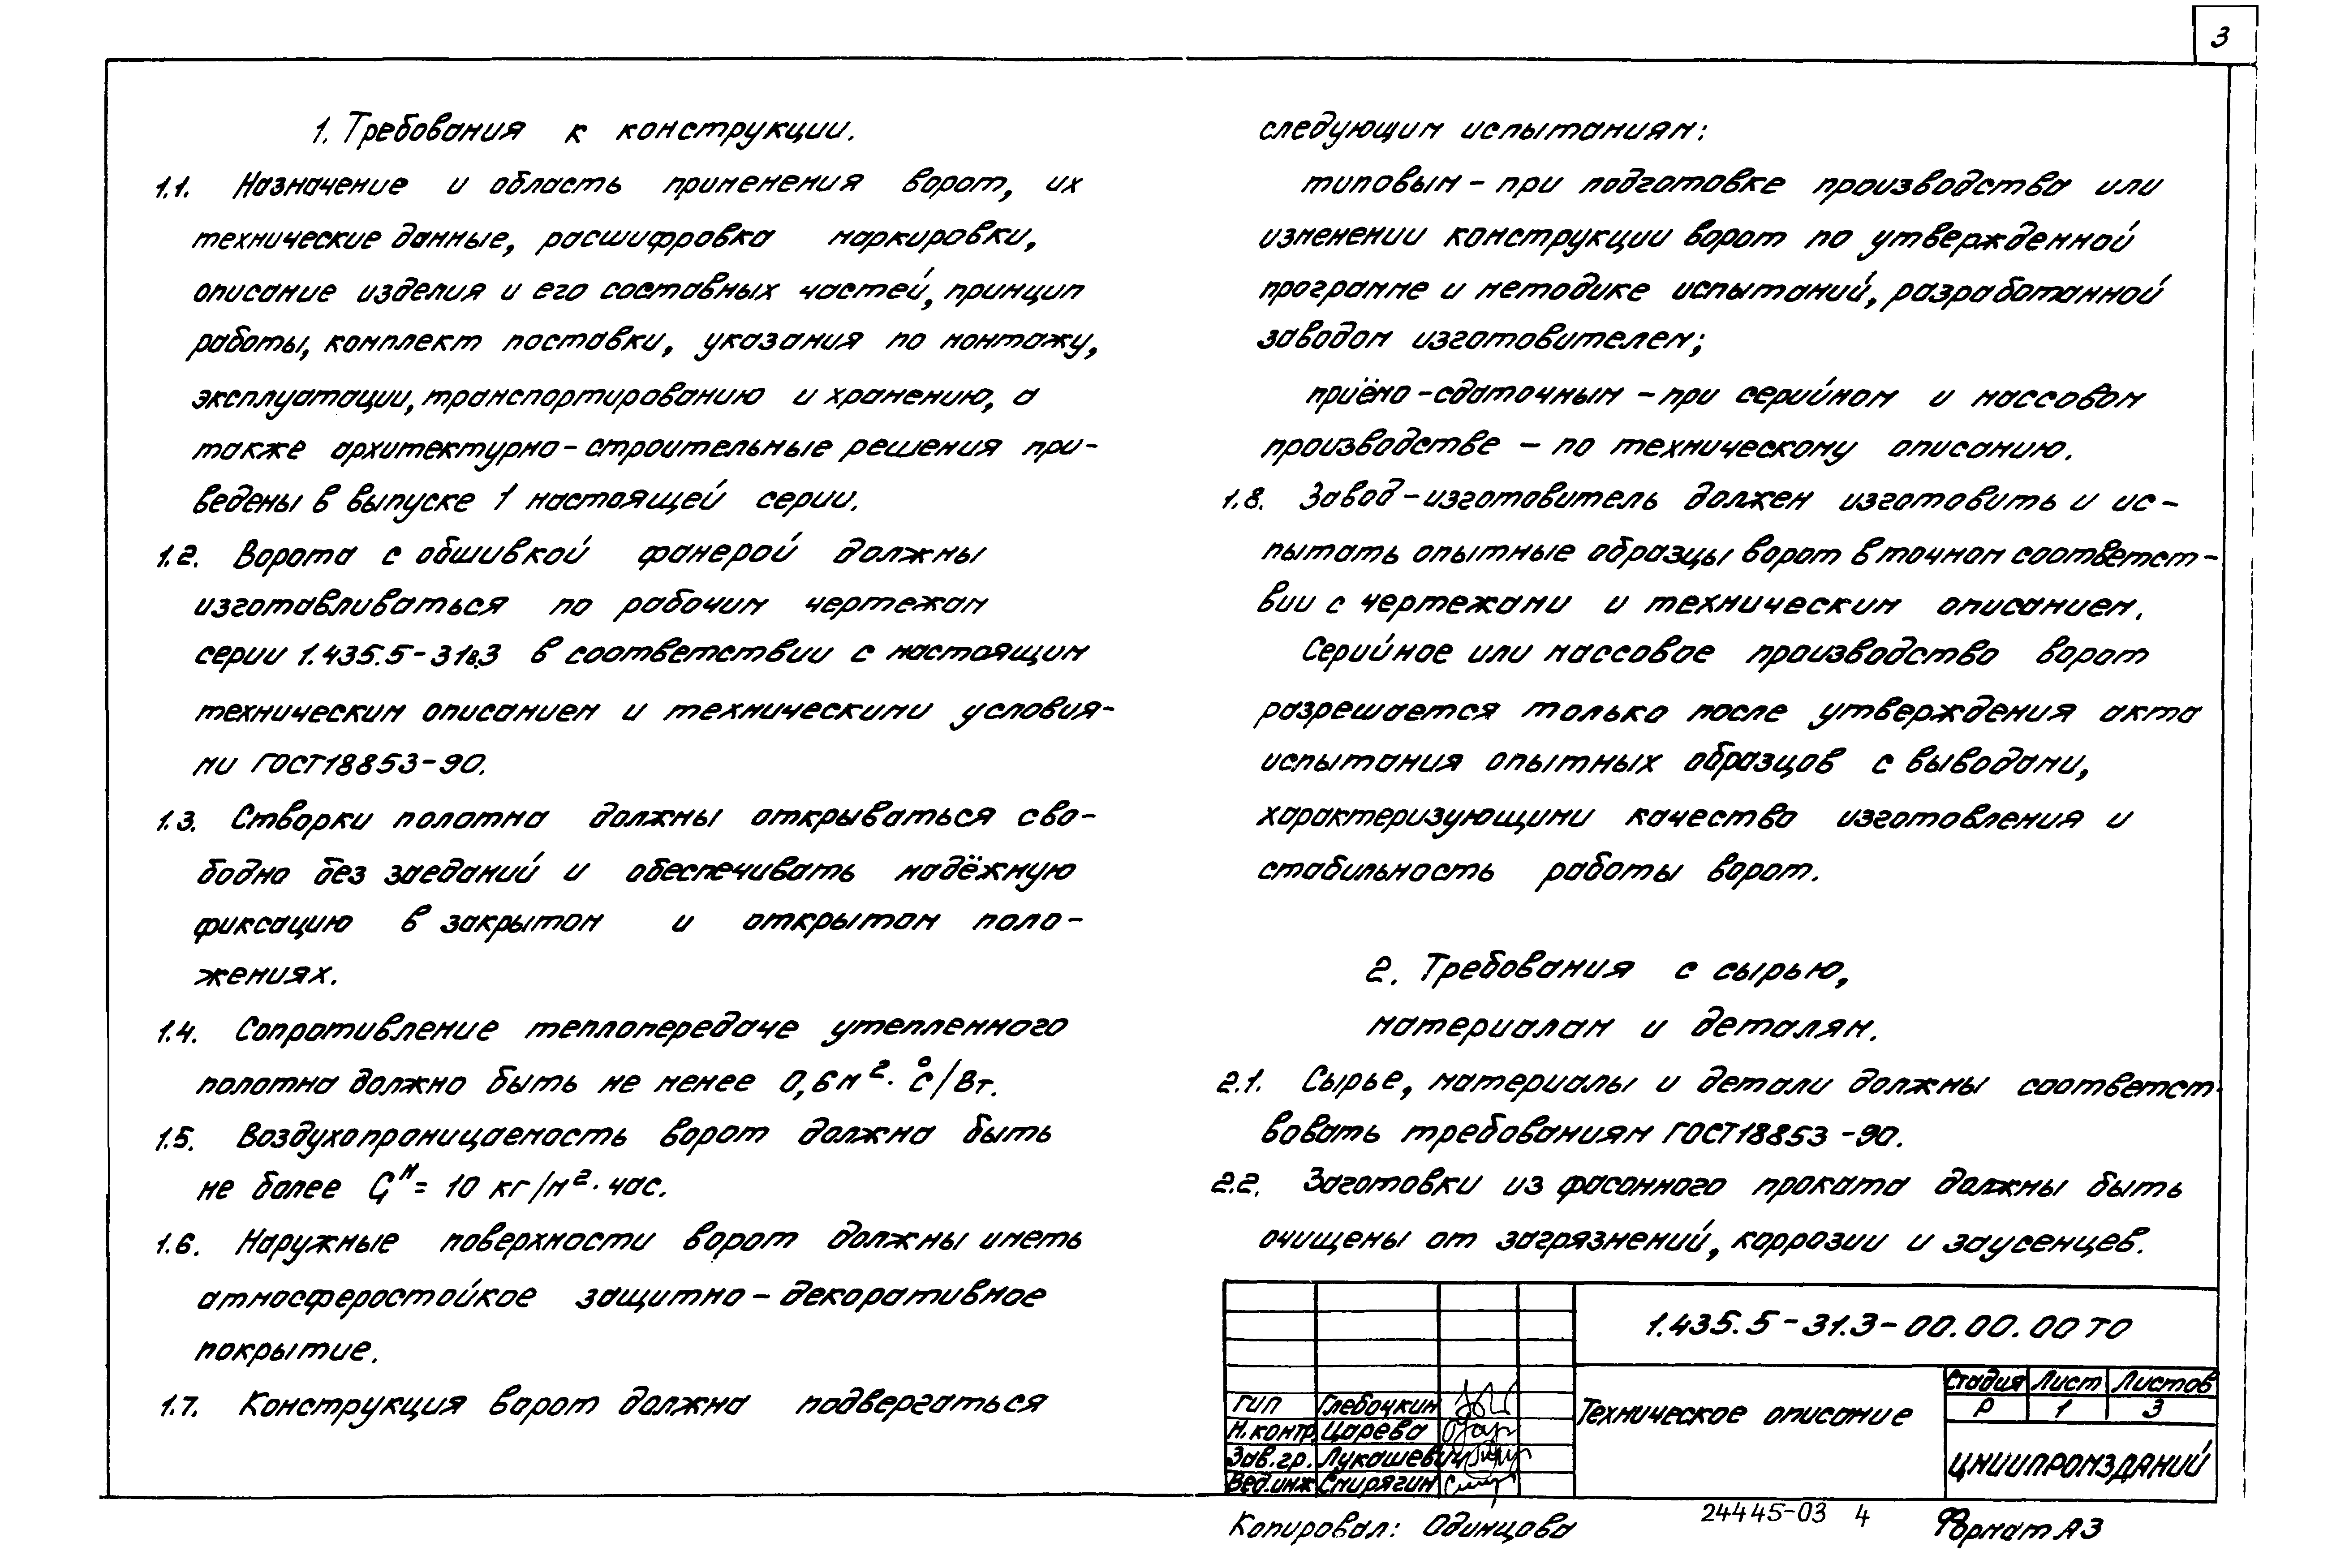 3
1. Требования к конструкции.
1.1. Назначение и область применения ворот, их
технические данные, расшифровка маркировки,
описание изделия и его составных частей, принцип
работы, комплект поставки, указания по монтажу,
эксплуатации, транспортированию и хранению, а
также архитектурно-строительные решения при-
ведены в выпуске 1 настоящей серии.
1.2. Ворота с обшивкой фанерой должны
изготавливаться по рабочим чертежам
серии 1.435.5-31в.3 в соответствии с настоящим
техническим описанием и техническими условия-
ми ГОСТ18853-90.
1.3. Створки полотна должны открываться сво-
бодно без заеданий и обеспечивать надёжную
фиксацию в закрытом и открытом поло-
жениях.
1.4. Сопротивление теплопередаче утепленного
полотна должно быть не менее 0,6 м²·°С/Вт.
1.5. Воздухопроницаемость ворот должна быть
не более Gᴴ = 10 кг/м²·час.
1.6. Наружные поверхности ворот должны иметь
атмосферостойкое защитно-декоративное
покрытие.
1.7. Конструкция ворот должна подвергаться
следующим испытаниям:
типовым - при подготовке производства или
изменении конструкции ворот по утвержденной
программе и методике испытаний, разработанной
заводом изготовителем;
приёмо-сдаточным - при серийном и массовом
производстве - по техническому описанию.
1.8. Завод-изготовитель должен изготовить и ис-
пытать опытные образцы ворот в точном соответст-
вии с чертежами и техническим описанием.
Серийное или массовое производство ворот
разрешается только после утверждения акта
испытания опытных образцов с выводами,
характеризующими качество изготовления и
стабильность работы ворот.
2. Требования с сырью,
материалам и деталям.
2.1. Сырье, материалы и детали должны соответст-
вовать требованиям ГОСТ18853-90.
2.2. Заготовки из фасонного проката должны быть
очищены от загрязнений, коррозии и заусенцев.
1.435.5-31.3-00.00.00 ТО
Техническое описание
Стадия Лист Листов
Р 1 3
ЦНИИПРОМЗДАНИЙ
ГИП Глебочкин
Н.контр. Царева
Зав.гр. Лукашевич
Вед.инж Спирягин
Копировал: Одинцова
24445-03 4
Формат А3